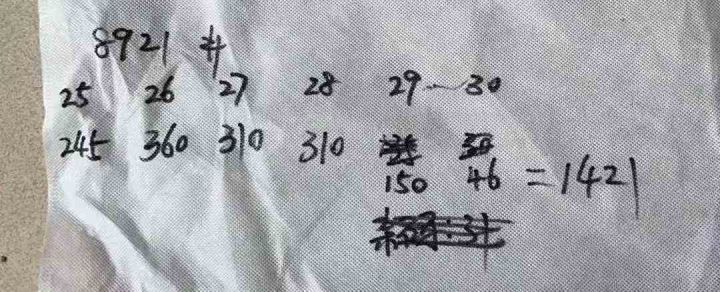 8921#
25 26 27 28 29 — 30
245 360 310 310
150 46 =1421